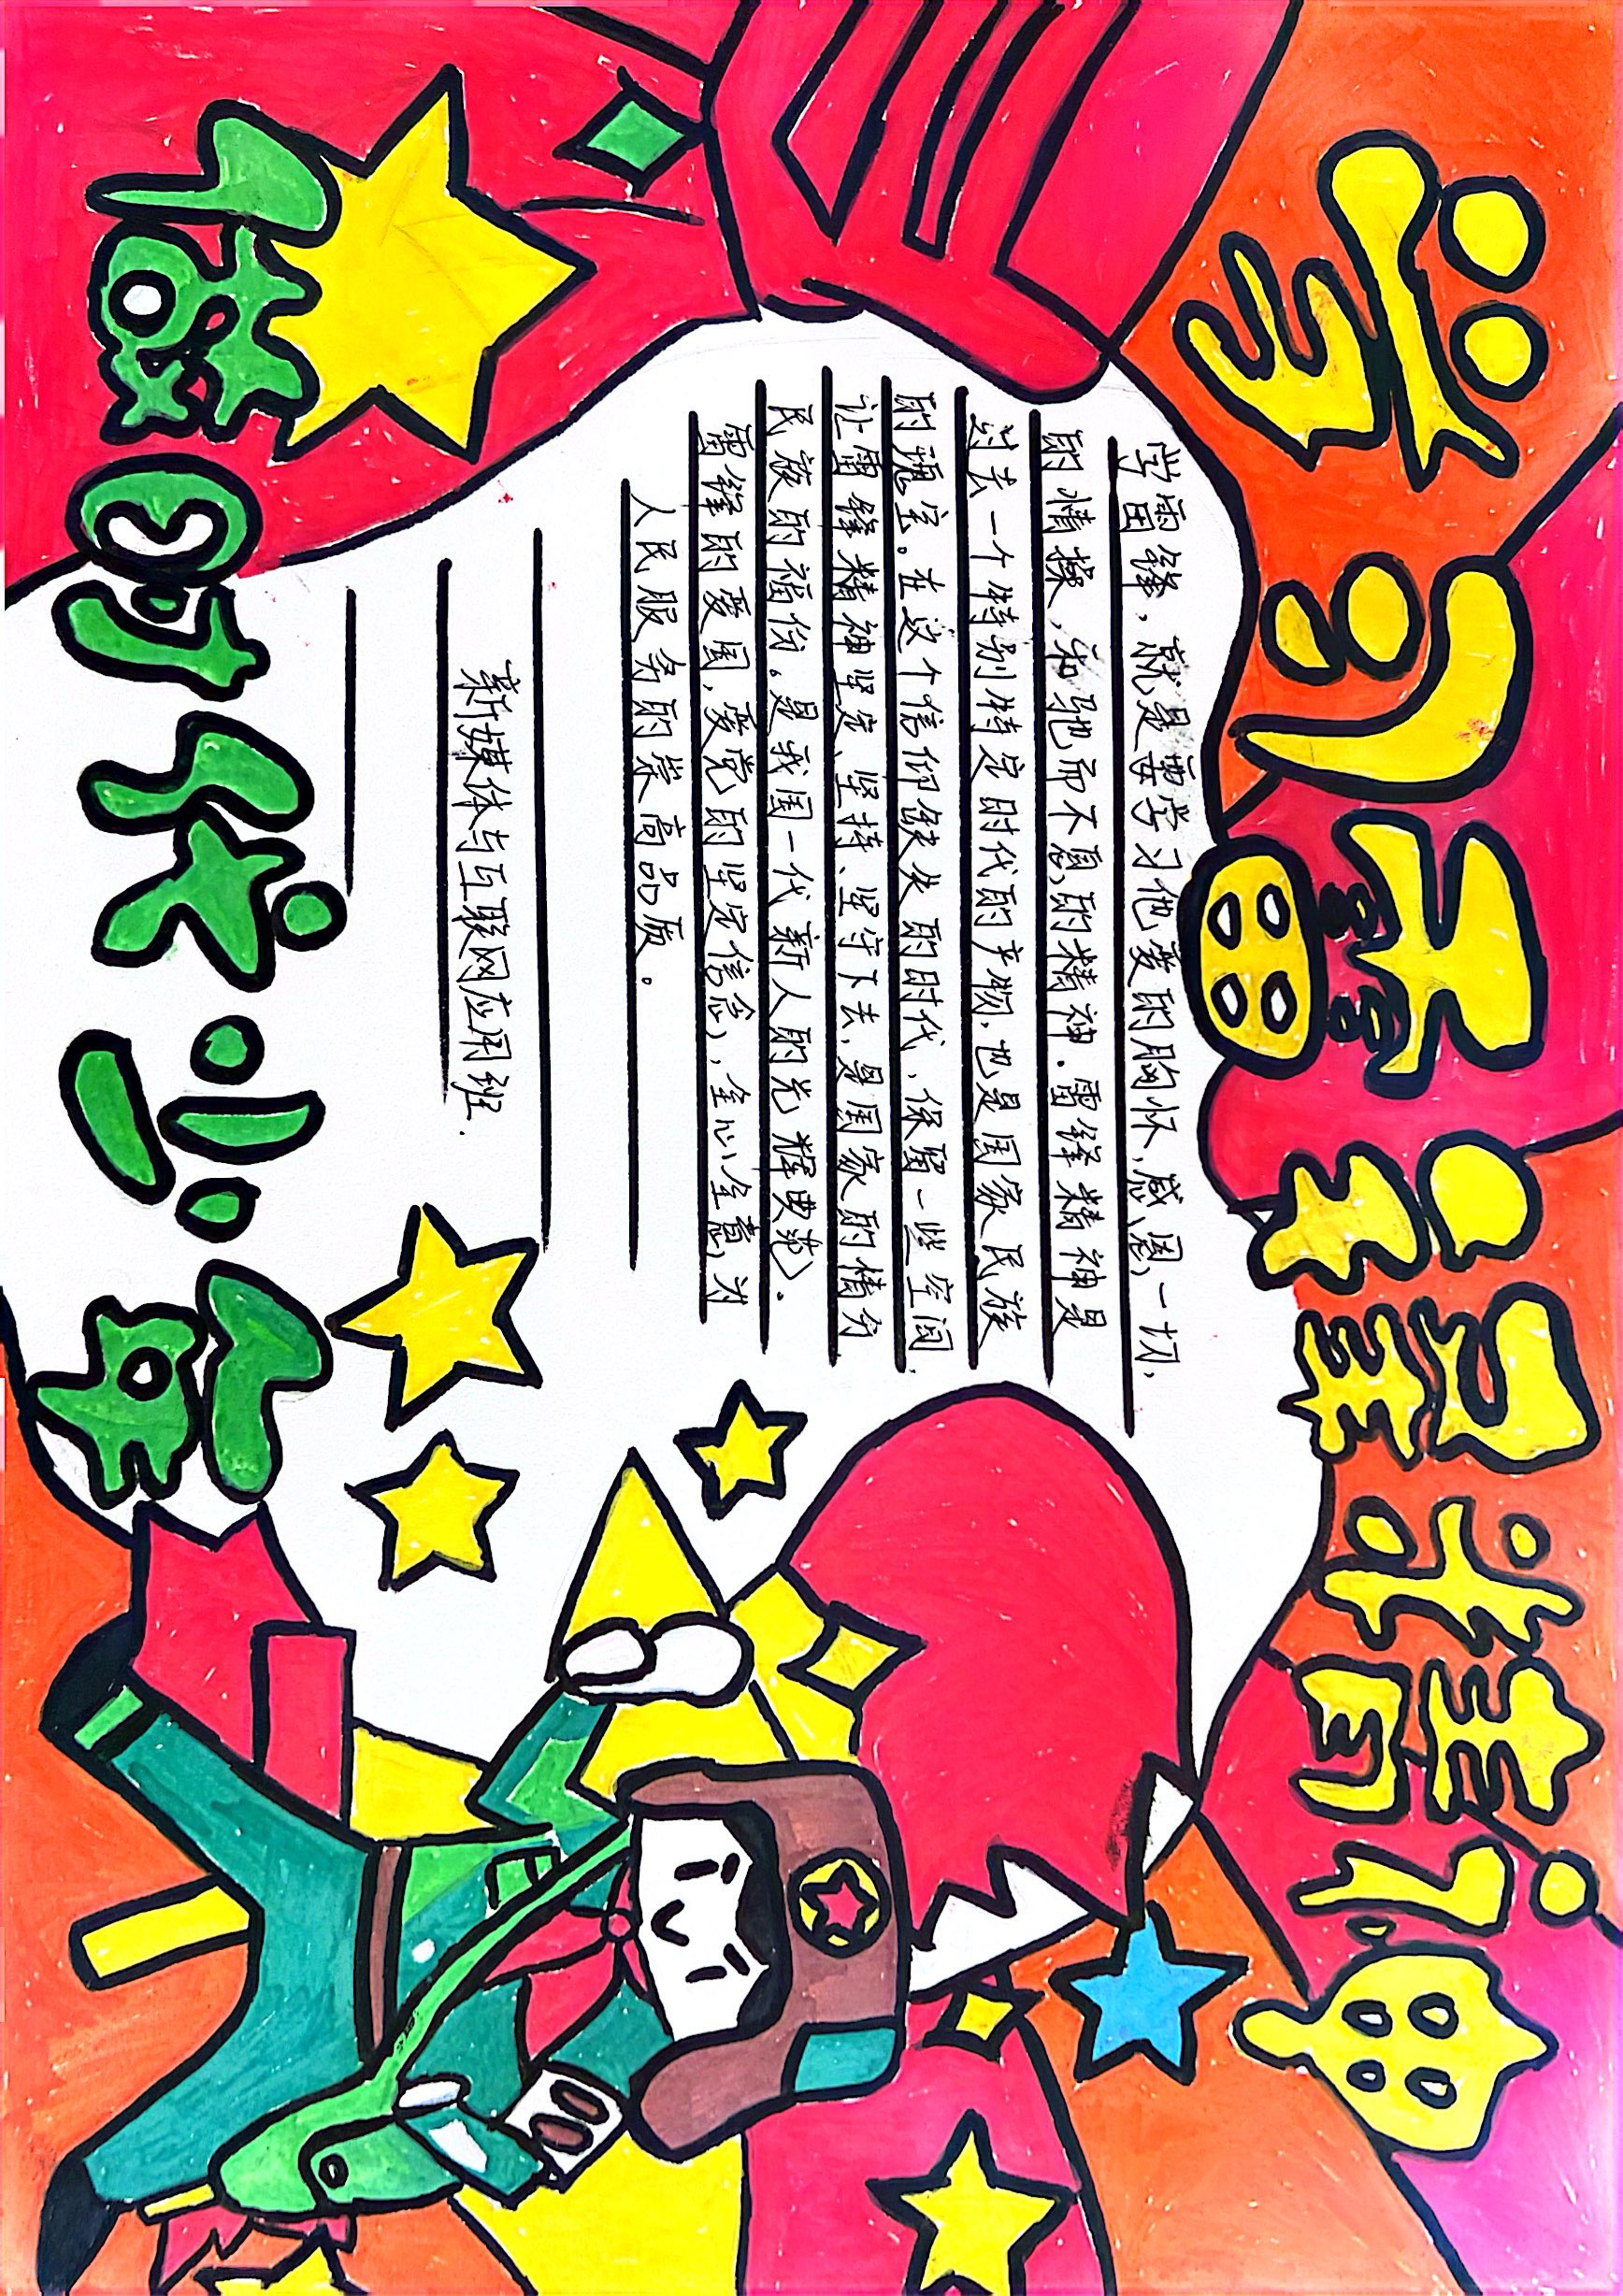 学习雷锋精神
学雷锋，就是要学习他爱的胸怀，感恩一切，
的情操，和驰而不息的精神．雷锋精神是
过去一个特别特定时代的产物，也是国家民族
的瑰宝。在这个信仰缺失的时代，保留一些空间，
让雷锋精神坚定、坚持、坚守下去，是国家的情分
民族的福份。是我国一代新人的光辉典范．
雷锋的爱国，爱党的坚定信念，全心全意为
人民服务的崇高品质。
新媒体与互联网应用班．